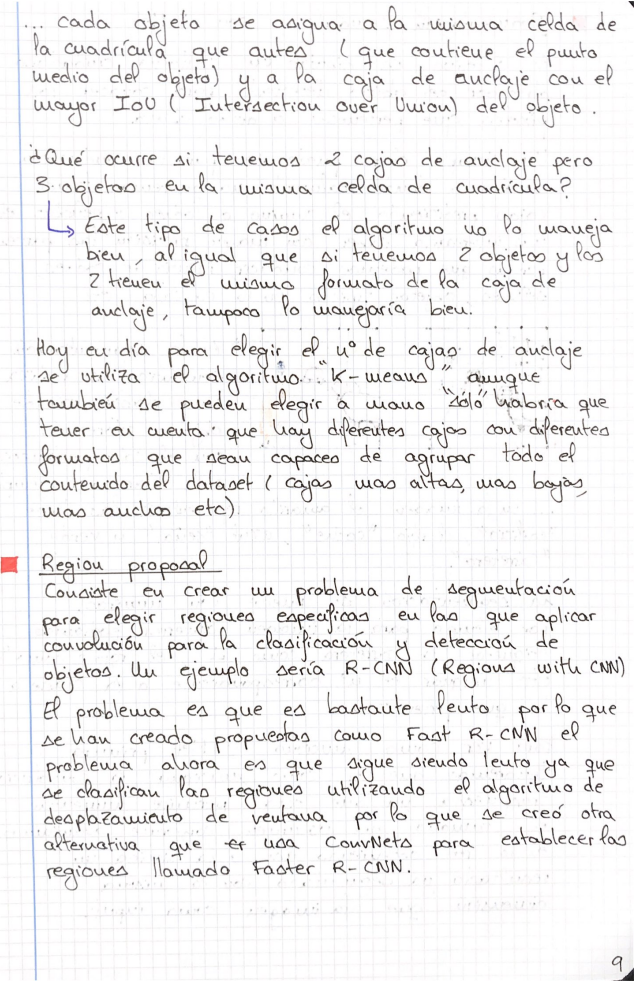 ... cada objeto se asigna a la misma celda de
la cuadrícula que antes (que contiene el punto
medio del objeto) y a la caja de anclaje con el
mayor IoU (Intersection over Union) del objeto.
¿Qué ocurre si tenemos 2 cajas de anclaje pero
3 objetos en la misma celda de cuadrícula?
↳ Este tipo de casos el algoritmo no lo maneja
bien, al igual que si tenemos 2 objetos y los
2 tienen el mismo formato de la caja de
anclaje, tampoco lo manejaría bien.
Hoy en día para elegir el nº de cajas de anclaje
se utiliza el algoritmo "K-means" aunque
también se pueden elegir a mano "sólo" habría que
tener en cuenta que hay diferentes cajas con diferentes
formatos que sean capaces de agrupar todo el
contenido del dataset (cajas mas altas, mas bajas,
mas anchas etc)
Region proposal
Consiste en crear un problema de segmentación
para elegir regiones específicas en las que aplicar
convolución para la clasificación y detección de
objetos. Un ejemplo sería R-CNN (Regions with CNN)
El problema es que es bastante lento por lo que
se han creado propuestas como Fast R-CNN el
problema ahora es que sigue siendo lento ya que
se clasifican las regiones utilizando el algoritmo de
desplazamiento de ventana por lo que se creó otra
alternativa que usa ConvNets para establecer las
regiones llamado Faster R-CNN.
9